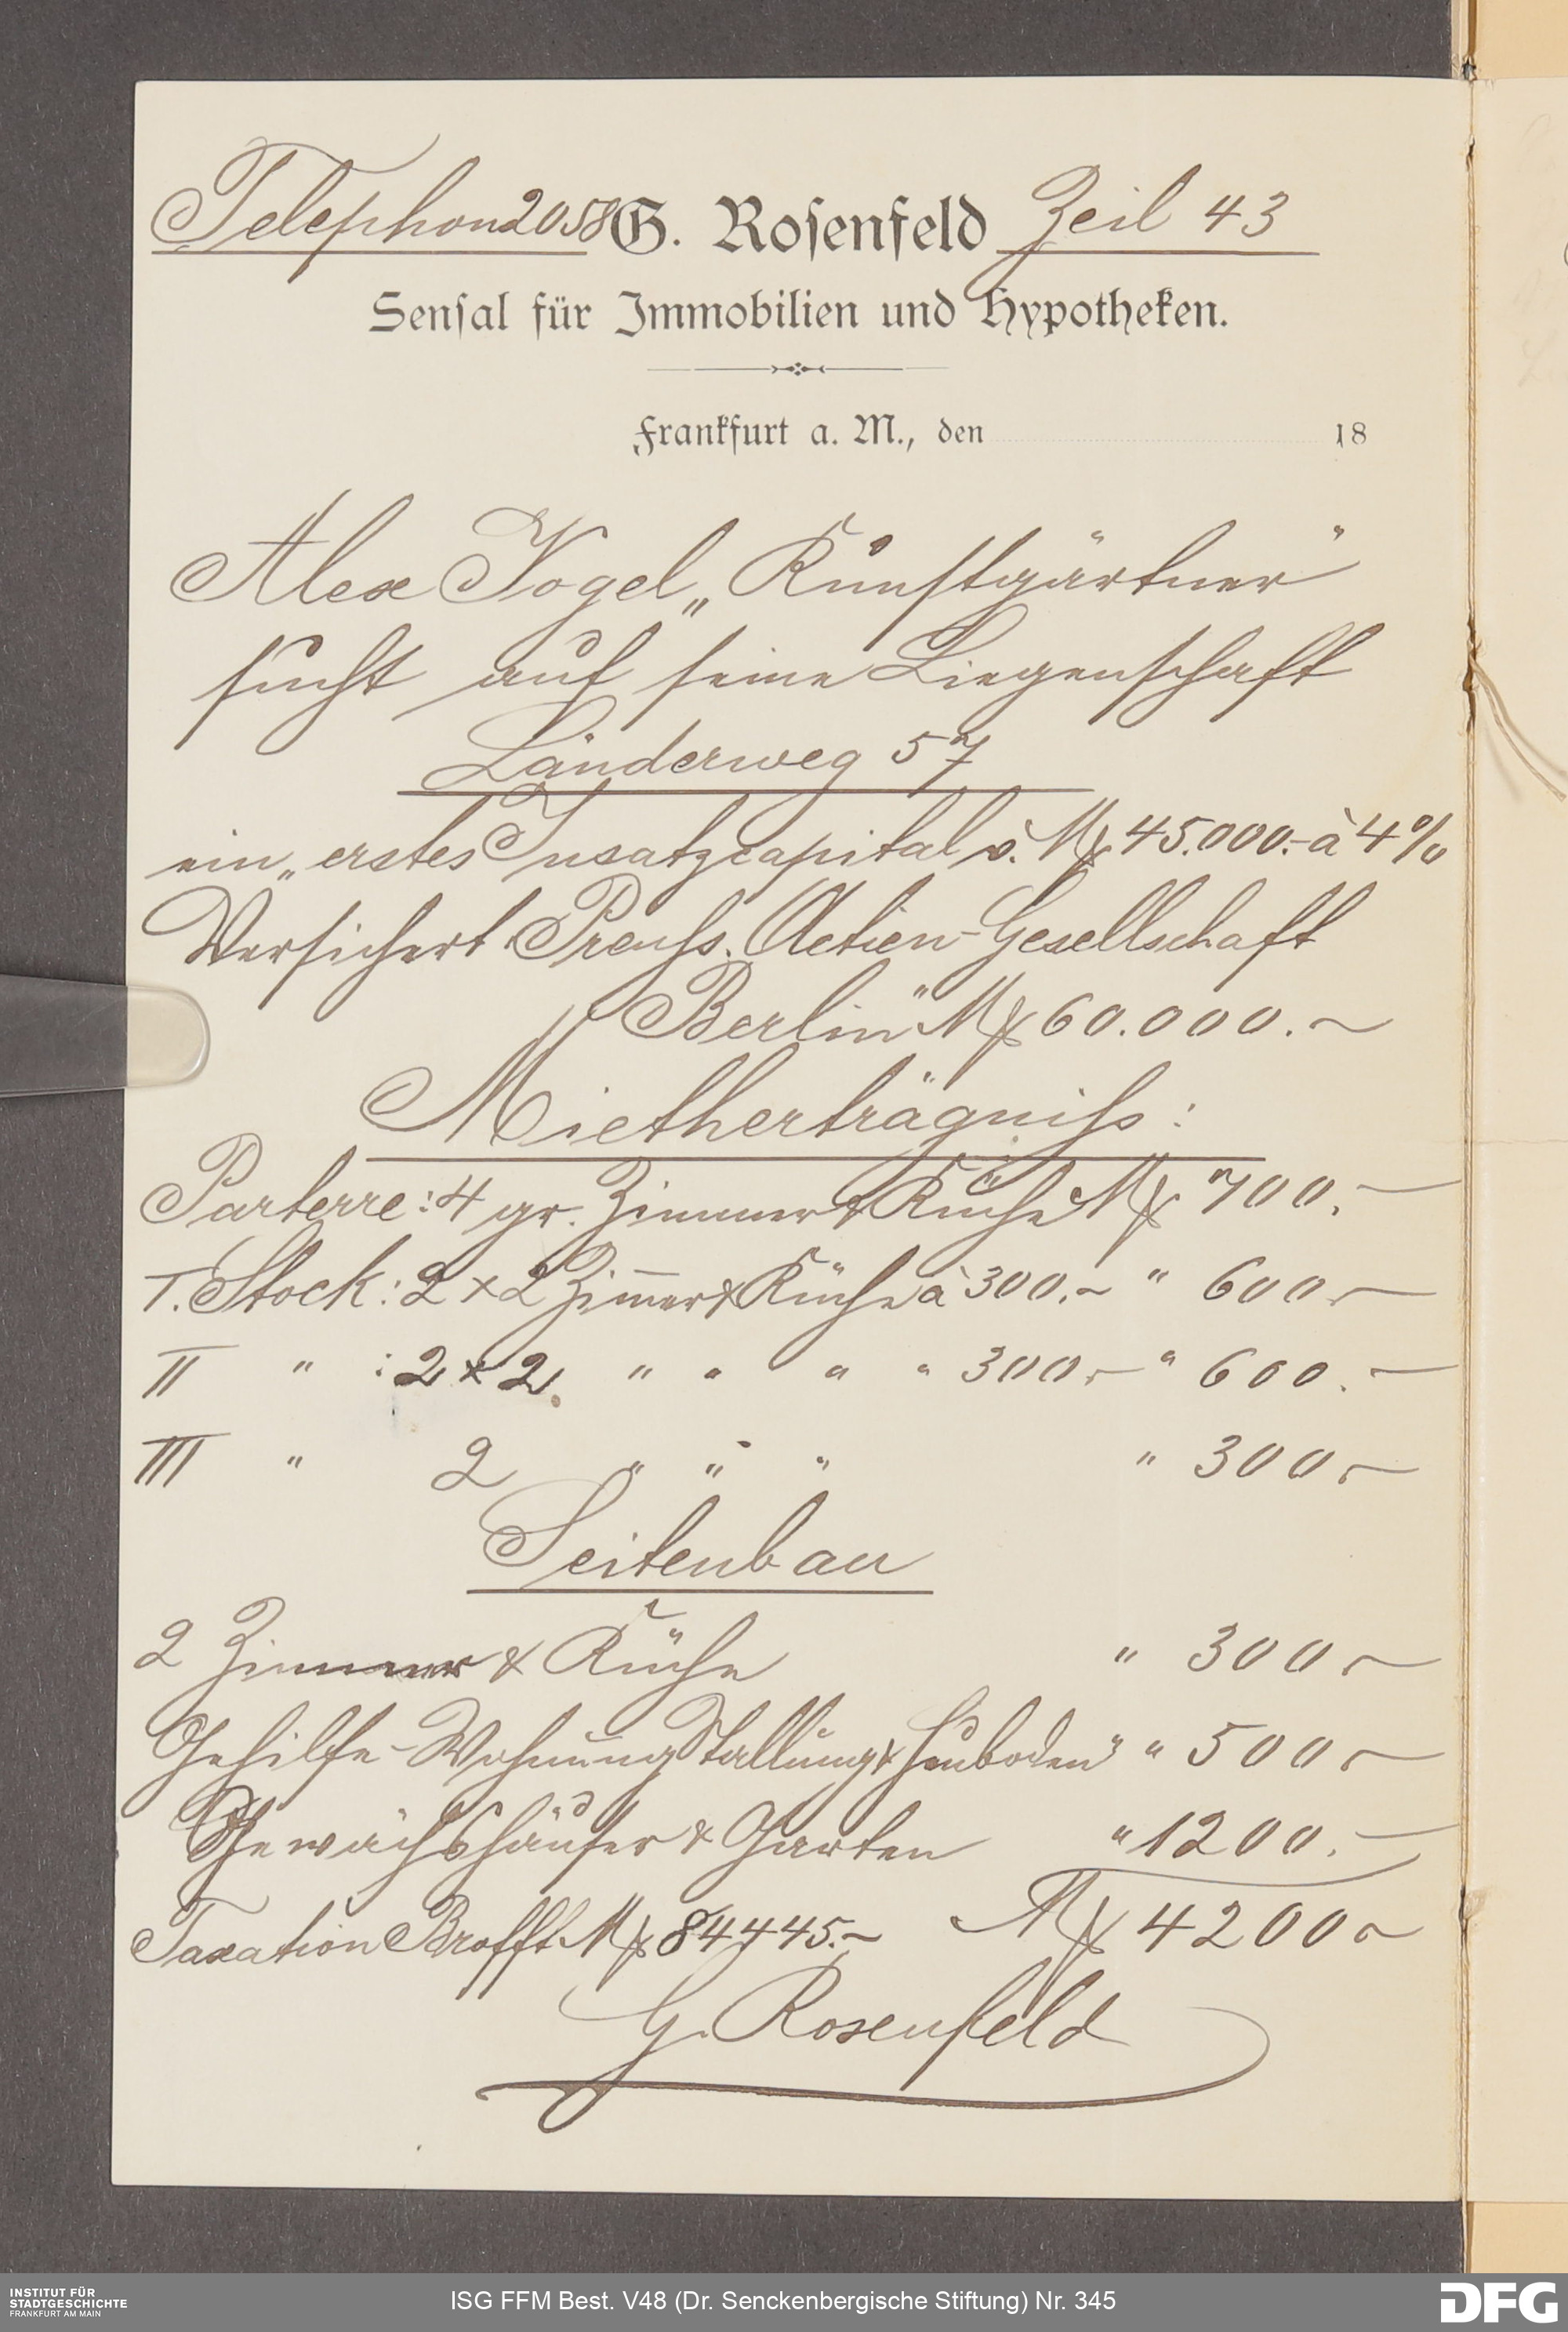 Telephon 2058 G. Rosenfeld Zeil 43
Sensal für Immobilien und Hypotheken.
Frankfurt a. M., den 18
Alex Vogel „Kunstgärtner"
sucht auf seine Liegenschaft
Länderweg 57
ein „erstes Insatzcapital v. M 45.000.- à 4%
Versichert Preuss. Actien-Gesellschaft
„Berlin" M 60.000.-
Mietherträgniss:
Parterre: 4 gr. Zimmer & Küche M 700.-
I. Stock: 2 x 2 Zimmer & Küche à 300.- " 600.-
II " : 2 x 2 " " " " 300.- " 600.-
III " 2 " " " " 300.-
Seitenbau
2 Zimmer & Küche " 300.-
Gehilfe-Wohnung Stallung & Heuboden " 500.-
Gewächshäuser & Garten " 1200.-
Taxation Brofft M 84445.- M 4200.-
G. Rosenfeld
INSTITUT FÜR
STADTGESCHICHTE
FRANKFURT AM MAIN
ISG FFM Best. V48 (Dr. Senckenbergische Stiftung) Nr. 345
DFG